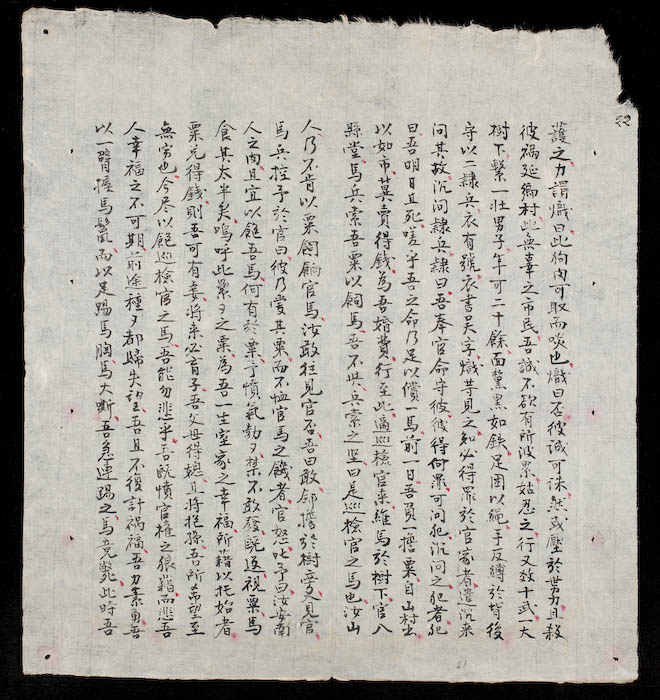 22
護之力謂熾曰此狗肉可取而啖也熾曰否彼誠可誅然或壓於勢力且殺
彼禍延鄉村此無辜之市民吾誠不欲有所波累姑忍之行又数十武一大
樹下繫一壯男子年可二十餘面黧黑如鉄足囷以繩手反縛於背後
守以二隸兵衣有號衣書吴字熾苛見之知必得罪於官家者遣沉来
問其故沉问隸兵隸曰吾奉官命守彼彼得何罪可问犯沉问之犯者犯
曰吾明日且死嗟乎吾之命乃足以償一馬前一日吾負一擔粟自山村出
以如市兾賣得錢為吾婚費行至此適巡檢官来維馬於樹下官入
縣堂馬兵索吾粟以飼馬吾不與兵索之堅曰是巡檢官之馬也汝山
人乃不肯以粟飼餉官馬汝敢往見官否吾曰敢卻擔於樹旁入見官
馬兵控予於官曰彼乃愛其粟而不恤官馬之饑者官怒叱予曰汝安南
人之肉且宜以飽吾馬何有於粟予憤氣勃々禁不敢發既返視粟馬
食其太半矣嗚呼此累々之粟為吾一生室家之幸福所藉以托始者
粟兑得錢則吾可有妻将来必育子吾父母得媳且将抱孫吾所希望之至
無窮也今尽以飽巡檢官之馬吾能勿悲乎吾既憤官權之狼藉而悲吾
人幸福之不可期前途種々都歸失望吾且不復計禍福吾力素勇吾
以一臂握馬鬣而以足踢馬胸馬大斷吾急連踢之馬竟斃此時吾